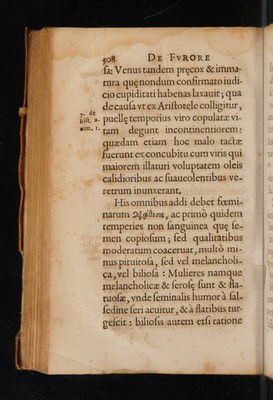 508 DE FVRORE
sa: Venus tandem pręcox & imma-
tura quę nondum confirmato iudi-
cio cupiditati habenas laxauit; qua
de causa vt ex Aristotele colligitur,
7. de
hist. a-
nim. 1.
puellę temporius viro copulatæ vi-
tam degunt incontinentiorem:
quædam etiam hoc malo tactæ
fuerunt ex concubitu cum viris qui
maiorem illaturi voluptatem oleis
calidioribus ac suaueolentibus ve-
retrum inunxerant.
His omnibus addi debet fœmi-
narum ac primò quidem
temperies non sanguinea quę se-
men copiosum; sed qualitatibus
moderatum coaceruat, multò mi-
nus pituitosa, sed vel melancholi-
ca, vel biliosa: Mulieres namque
melancholicæ & serosę sunt & fla-
tuosæ, vnde seminalis humor à sal-
sedine seri acuitur, & à flatibus tur-
gescit: biliosis autem etsi ratione